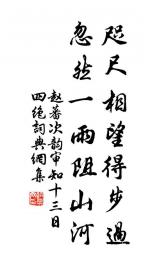 咫尺相望得步過
忽然一雨阻山河
趙蕃次韵审知十三日
四绝詞典網集